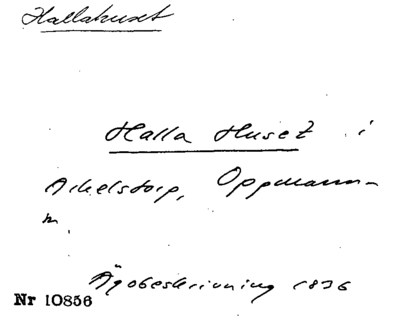 Hallahuset
Halla Huset i
Arkelstorp, Oppmanna-
n.
Ägobeskrivning 1836
Nr 10856